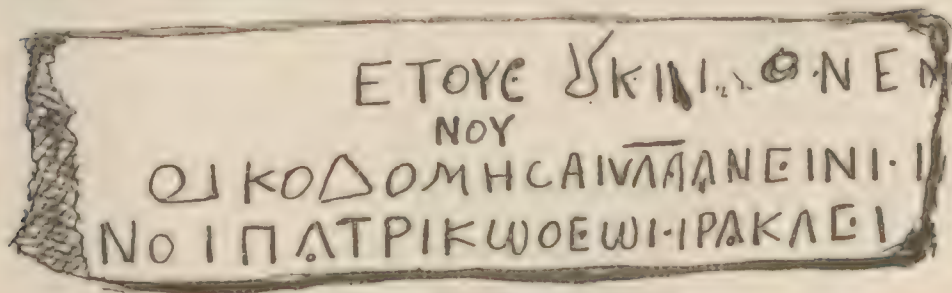 ΕΤΟΥϹ ȢΚΙΝΙ... Θ·ΝΕΝ
ΝΟΥ
ΟΙΚΟΔΟΜΗϹΑΙΝΛΑΑΝΕΙΝΙ·Ι
ΝΟΙΠΑΤΡΙΚΩΟΕΩΙ·ΙΡΑΚΛΕΙ